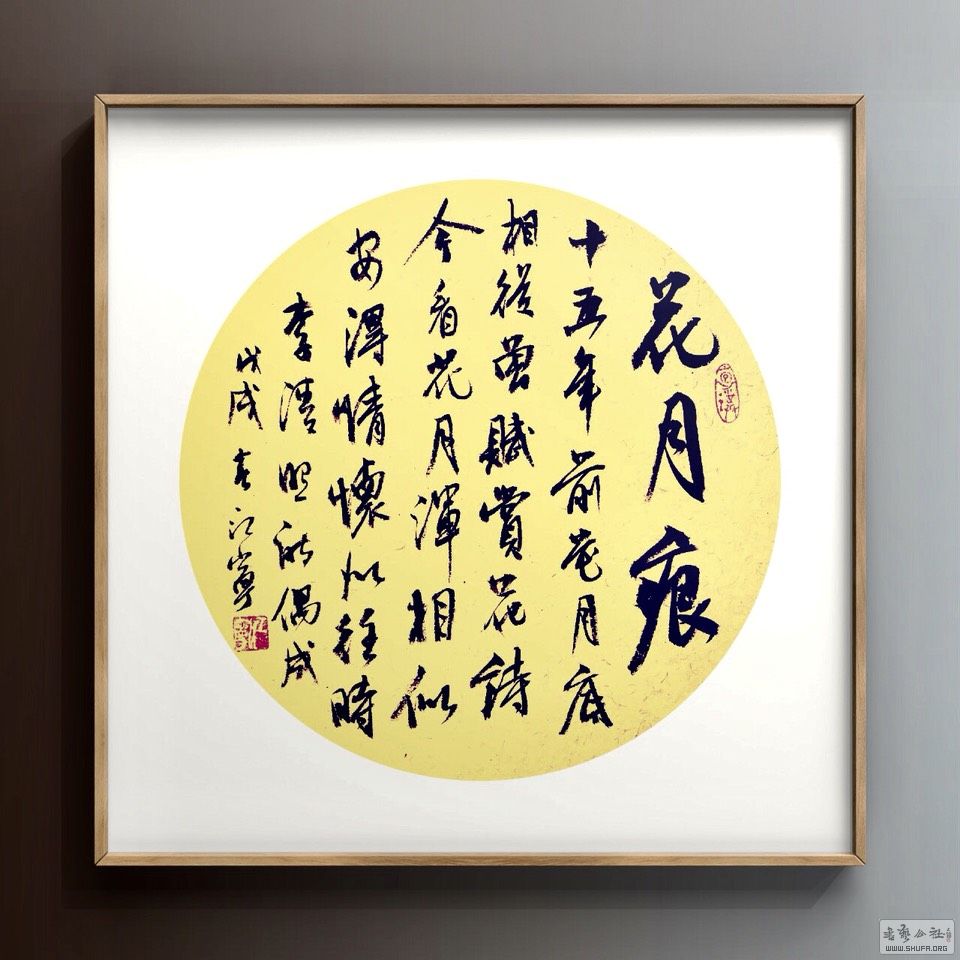 花月痕
十五年前花月底
相從曾賦賞花詩
今看花月渾相似
安得情懷似往時
李清照詞偶成
戊戌
WWW.SHUFA.ORG